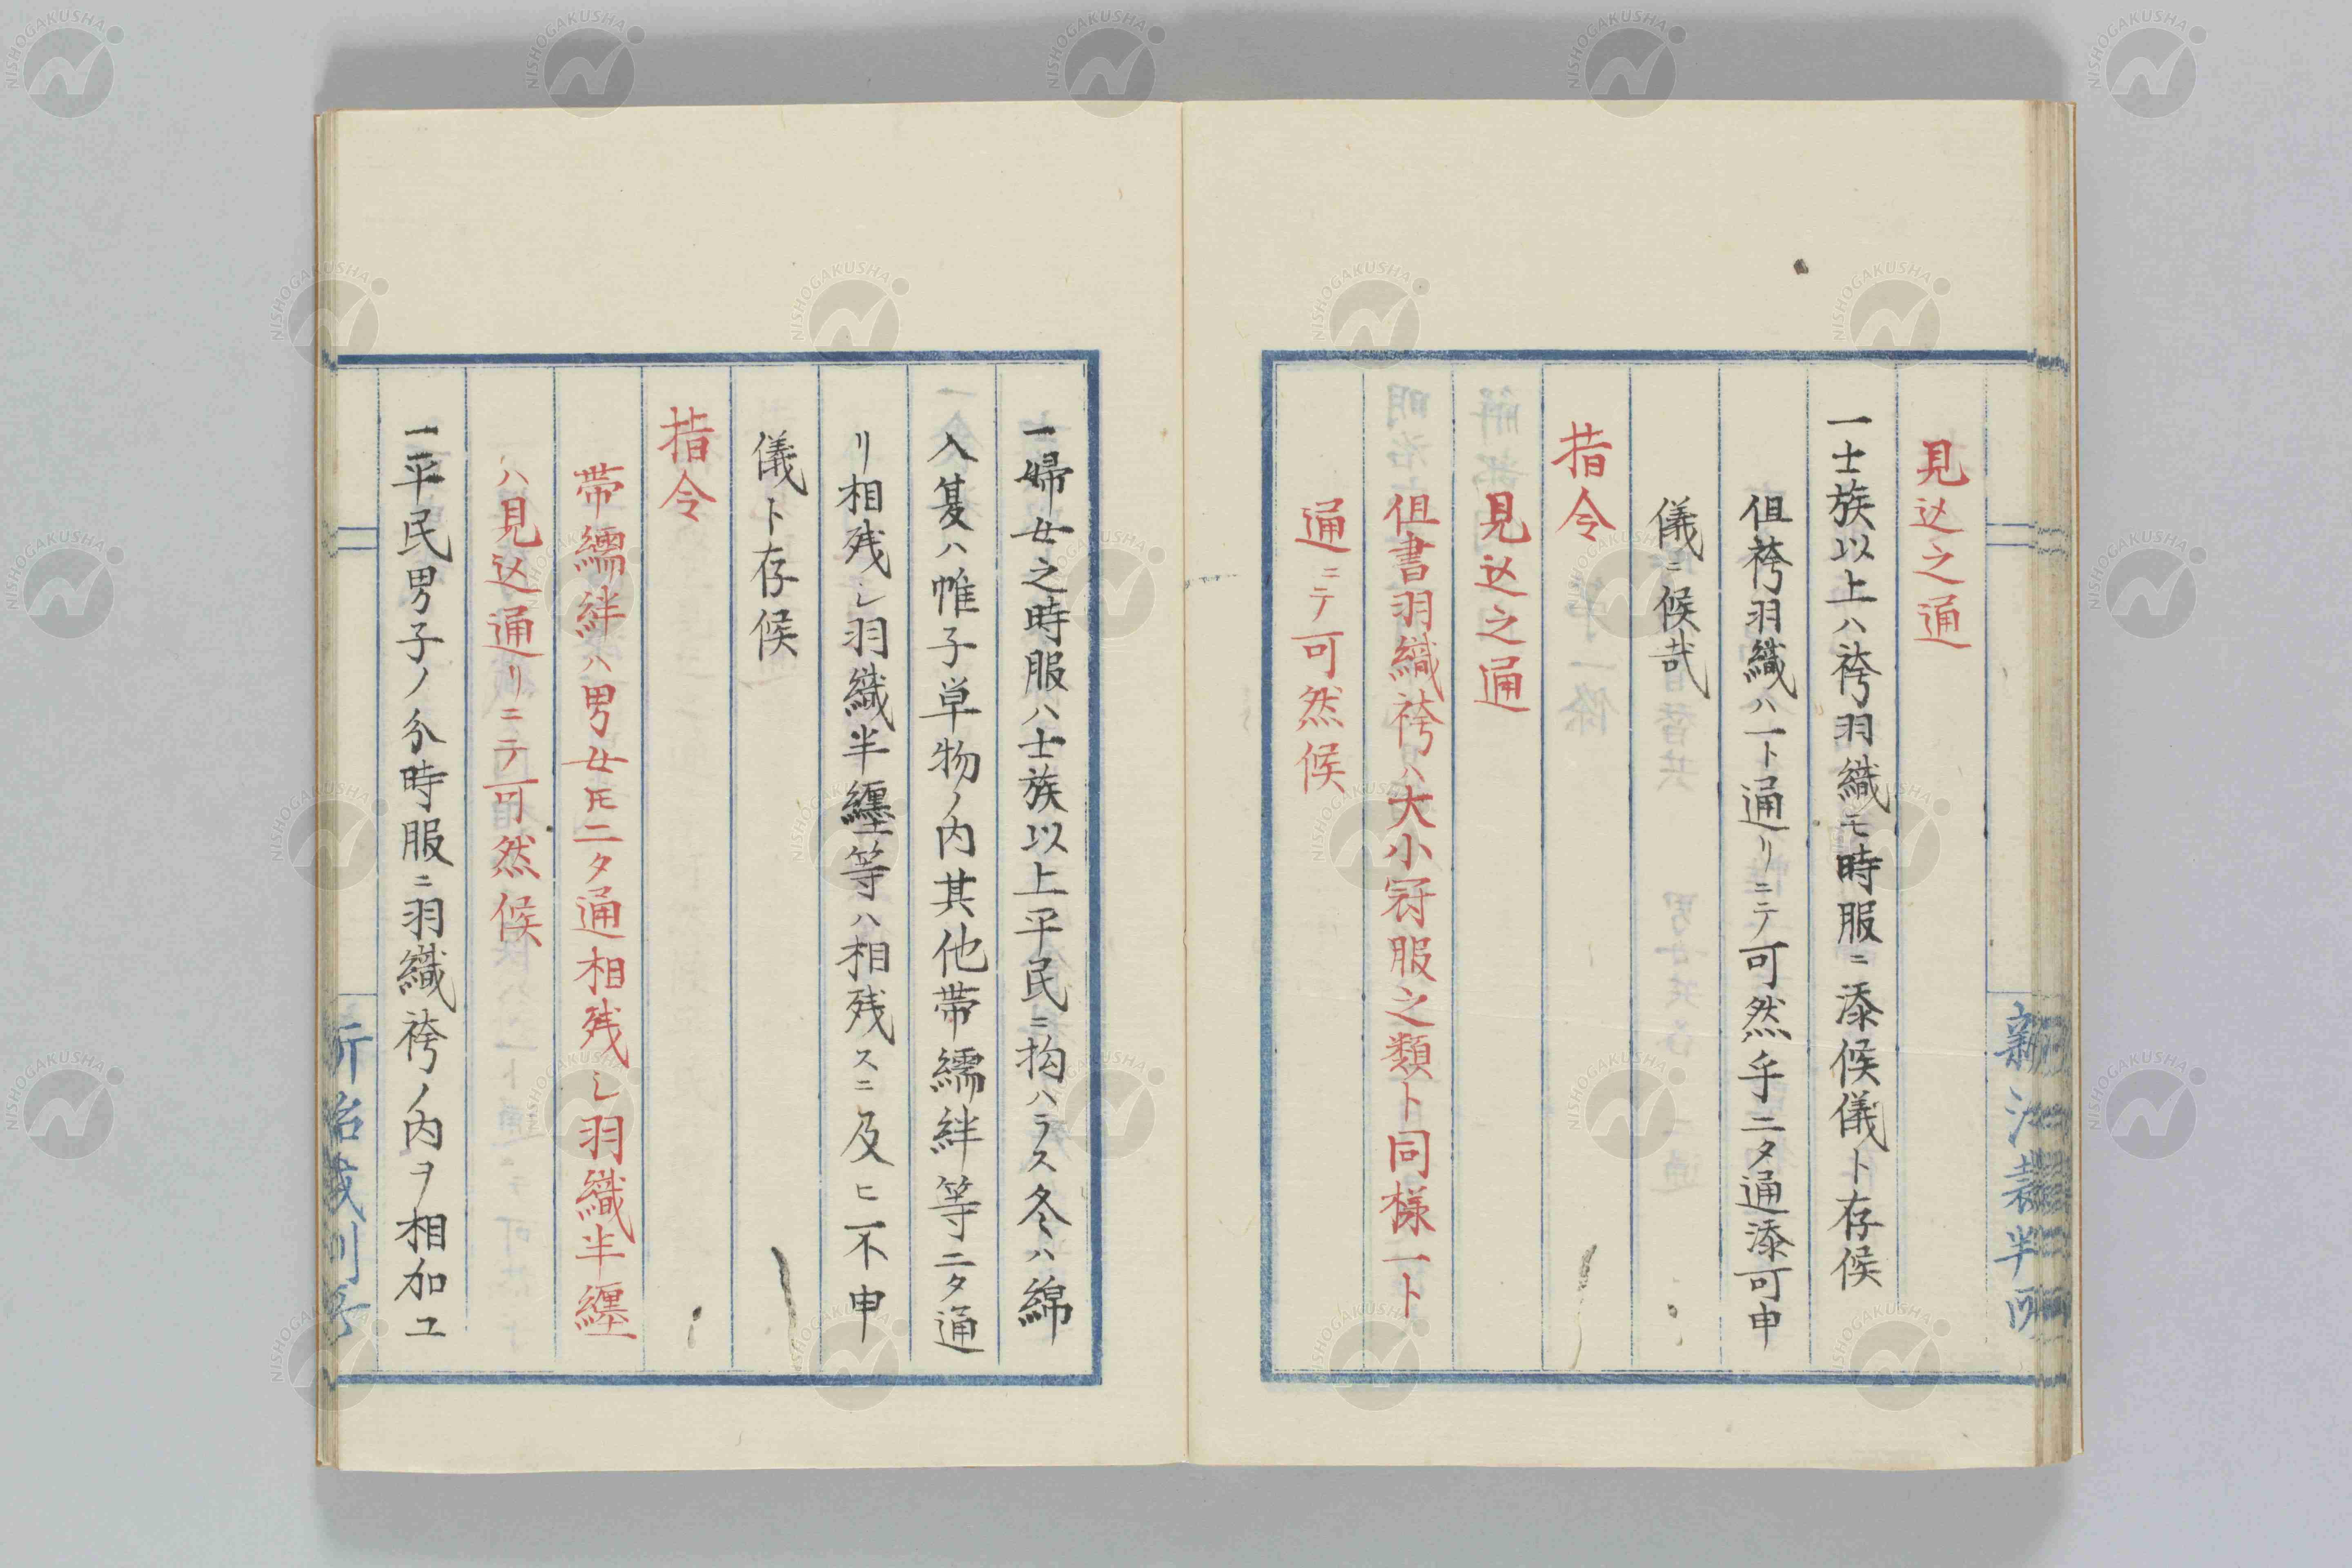 見込之通
一士族以上ハ袴羽織モ時服ニ添候儀ト存候
但袴羽織ハ一ト通リニテ可然乎二タ通添可申
儀ニ候哉
指令
見込之通
但書羽織袴ハ大小冠服之類ト同様一ト
通ニテ可然候
一婦女之時服ハ士族以上平民ニ拘ハラス冬ハ綿
入夏ハ帷子単物ノ内其他帯繻絆等二タ通
リ相残シ羽織半纏等ハ相残スニ及ヒ不申
儀ト存候
指令
帯繻絆ハ男女トモ二タ通相残シ羽織半纏
ハ見込通リニテ可然候
一平民男子ノ分時服ニ羽織袴ノ内ヲ相加ユ
新治裁判所
NISHOGAKUSHA